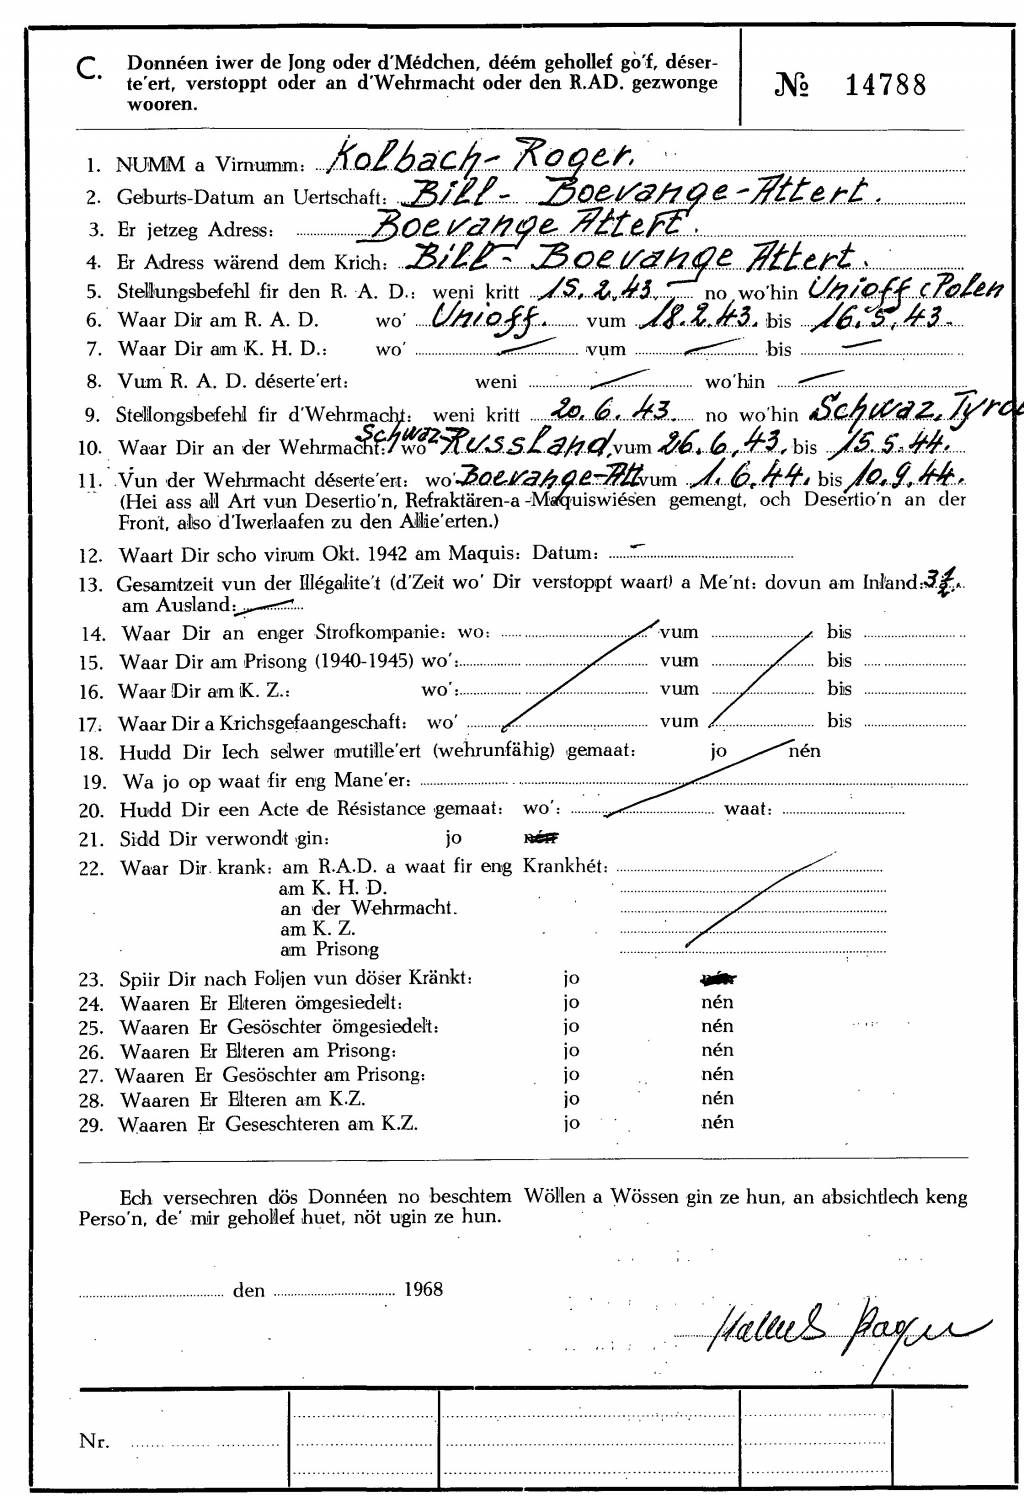 C. Donnéen iwer de Jong oder d'Médchen, déém gehollef go'f, déser-
te'ert, verstoppt oder an d'Wehrmacht oder den R.AD. gezwonge
wooren.
№ 14788
1. NUMM a Virnumm: Kolbach-Roger.
2. Geburts-Datum an Uertschaft: Bill- Boevange-Attert.
3. Er jetzeg Adress: Boevange Attert.
4. Er Adress wärend dem Krich: Bill- Boevange Attert.
5. Stellungsbefehl fir den R. A. D.: weni kritt 15.2.43. no wo'hin Unioff (Polen
6. Waar Dir am R. A. D. wo' Unioff. vum 18.2.43. bis 16.5.43.
7. Waar Dir am K. H. D.: wo' vum bis
8. Vum R. A. D. déserte'ert: weni wo'hin
9. Stellongsbefehl fir d'Wehrmacht: weni kritt 20.6.43. no wo'hin Schwaz, Tyrol
10. Waar Dir an der Wehrmacht: wo Schwaz-Russland, vum 26.6.43. bis 15.5.44.
11. Vun der Wehrmacht déserte'ert: wo' Boevange-Att vum 1.6.44. bis 10.9.44.
(Hei ass all Art vun Desertio'n, Refraktären-a-Maquiswiésen gemengt, och Desertio'n an der
Front, also d'Iwerlaafen zu den Allie'erten.)
12. Waart Dir scho virum Okt. 1942 am Maquis: Datum: -
13. Gesamtzeit vun der Illégalite't (d'Zeit wo' Dir verstoppt waart) a Me'nt: dovun am Inland: 3½.
am Ausland:
14. Waar Dir an enger Strofkompanie: wo: vum bis
15. Waar Dir am Prisong (1940-1945) wo': vum bis
16. Waar Dir am K. Z.: wo': vum bis
17. Waar Dir a Krichsgefaangeschaft: wo' vum bis
18. Hudd Dir Iech selwer mutille'ert (wehrunfähig) gemaat: jo nén
19. Wa jo op waat fir eng Mane'er:
20. Hudd Dir een Acte de Résistance gemaat: wo': waat:
21. Sidd Dir verwondt gin: jo nén
22. Waar Dir krank: am R.A.D. a waat fir eng Krankhét:
am K. H. D.
an der Wehrmacht.
am K. Z.
am Prisong
23. Spiir Dir nach Foljen vun döser Kränkt: jo nén
24. Waaren Er Elteren ömgesiedelt: jo nén
25. Waaren Er Gesöschter ömgesiedelt: jo nén
26. Waaren Er Elteren am Prisong: jo nén
27. Waaren Er Gesöschter am Prisong: jo nén
28. Waaren Er Elteren am K.Z. jo nén
29. Waaren Er Geseschteren am K.Z. jo nén
Ech versechren dös Donnéen no beschtem Wöllen a Wössen gin ze hun, an absichtlech keng
Perso'n, de' mir gehollef huet, nöt ugin ze hun.
den 1968
Nr.